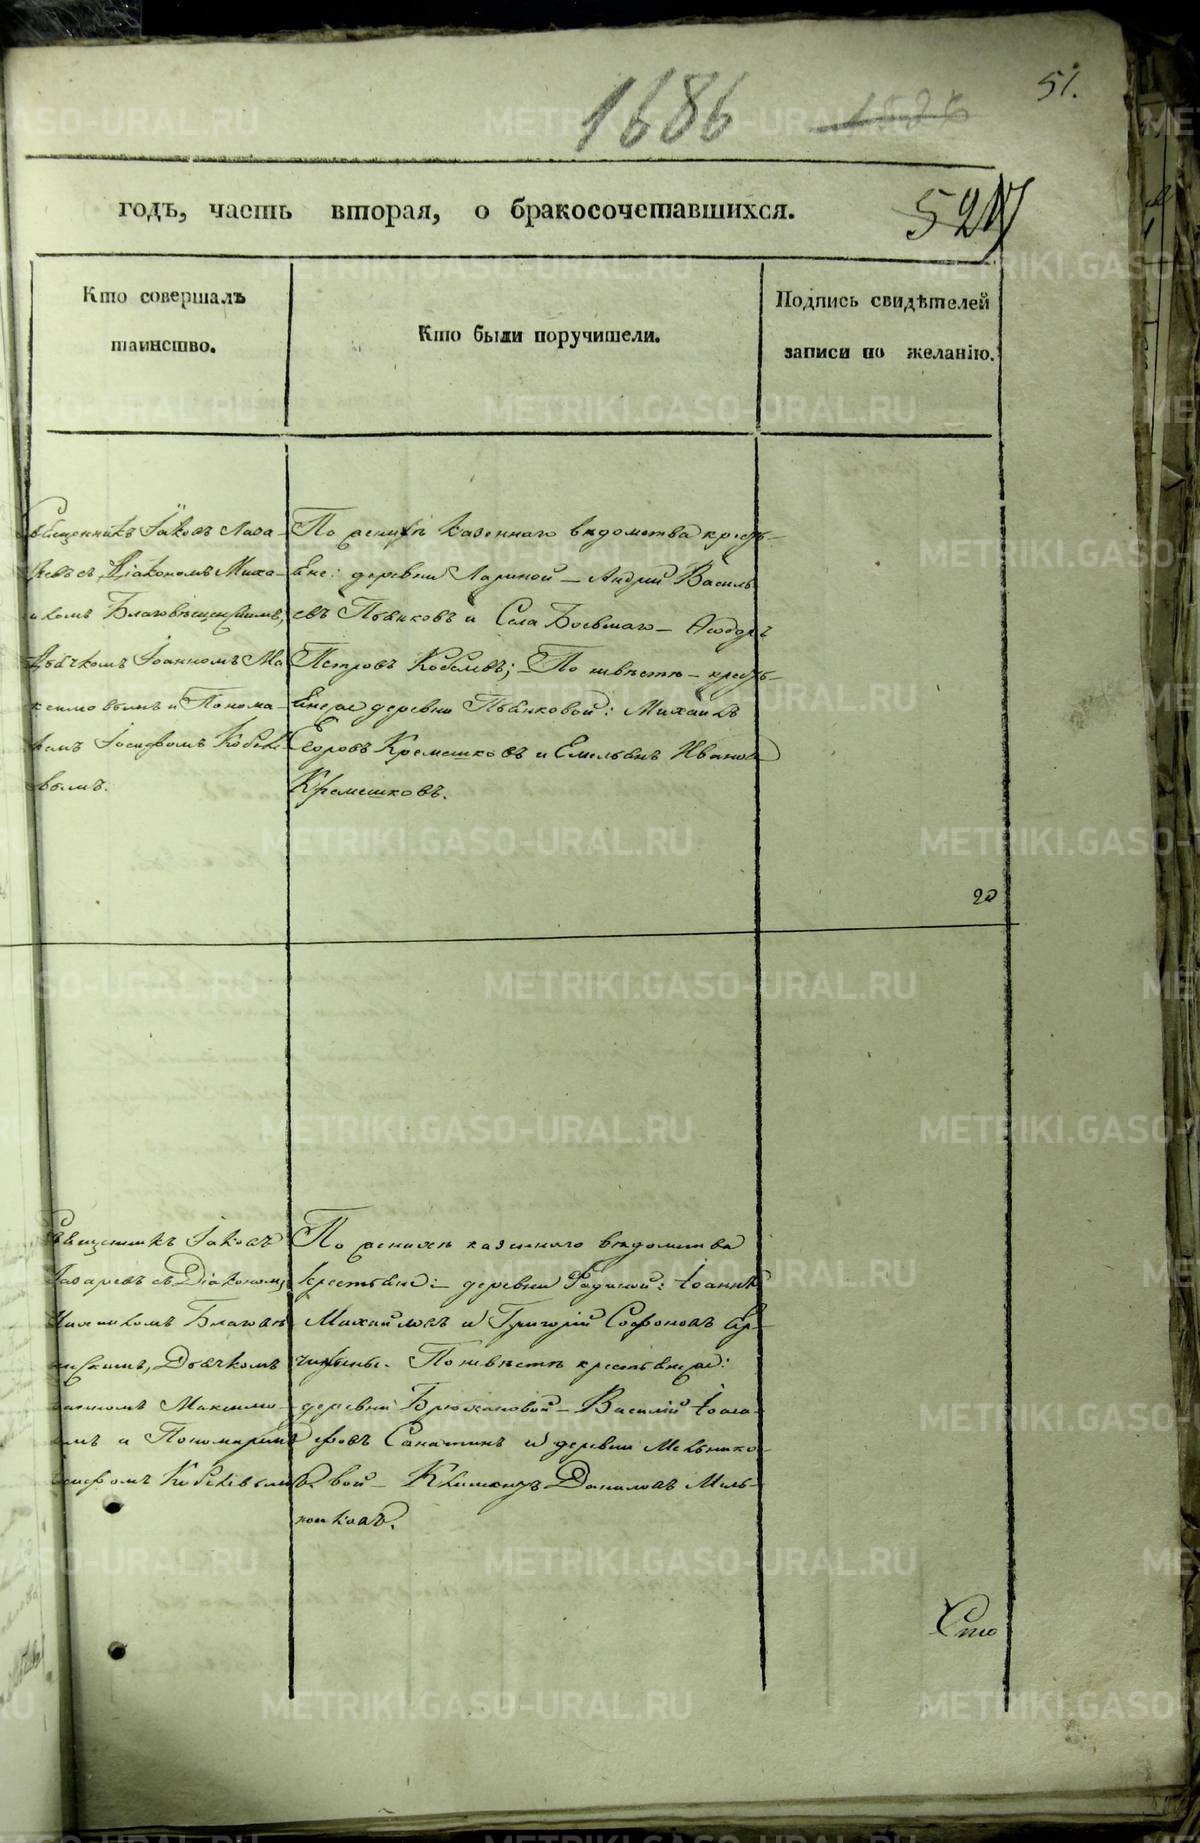 51.
1686
1526
годъ, часть вторая, о бракосочетавшихся.
Кто совершалъ таинство.
Кто были поручители.
Подпись свидѣтелей записи по желанію.
Священникъ Іаковъ Лаза-
ревъ съ Діакономъ Миха-
иломъ Благовѣщенскимъ,
Дьячкомъ Іоанномъ Ма
ксимовымъ и Понома-
ремъ Іосифомъ Кобеле
вымъ.
По женихѣ казеннаго вѣдомства кресть-
яне: деревни Лариной – Андрей Василь
евъ Пьянковъ и Села – Ѳеодоръ
Петровъ Кобелевъ; По невѣстѣ – кресть-
яне деревни Пьянковой: Михаилъ
Егоровъ Кремешковъ и Емельянъ Ивановъ
Кремешковъ.
20
Священникъ Іаковъ
Лазаревъ съ Діакономъ
Благовѣ
Дьячкомъ
Іоанномъ Максимо
и Пономаремъ
Іосифомъ Кобелевымъ.
По женихѣ казеннаго вѣдомства
крестьяне: деревни Іоаннъ
Михайловъ и Григорій Софоновъ
По невѣстѣ крестьяне:
деревни – Василій
Санатинъ и деревни Мельнико
вой – Климентъ Даниловъ Мель-
никовъ.
Сто